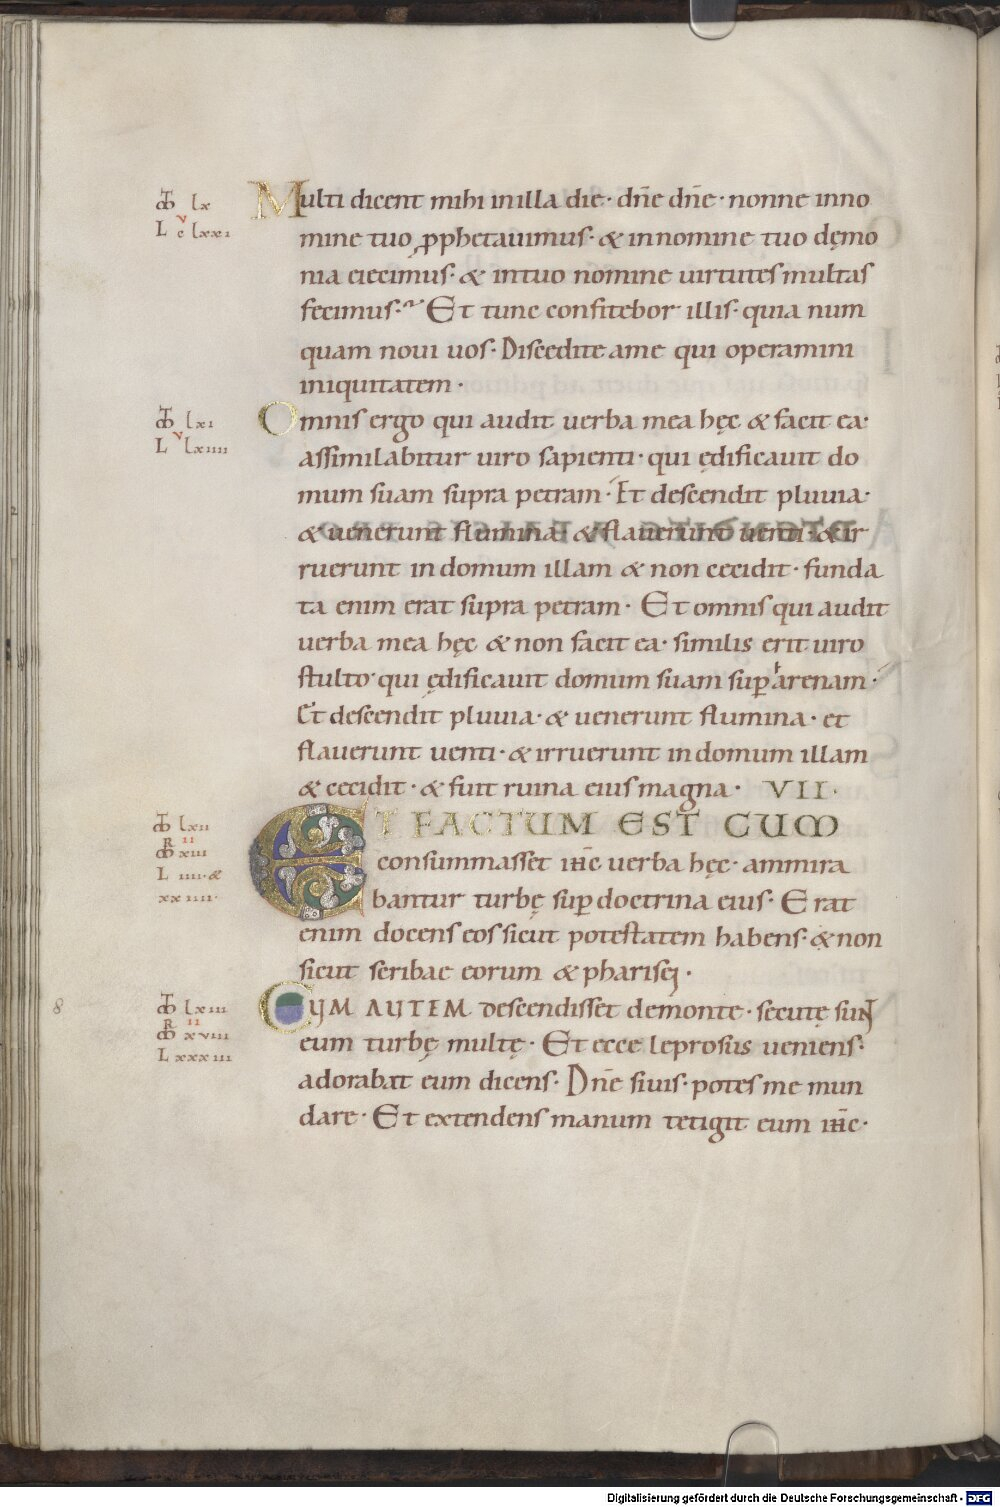 Multi dicent mihi in illa die· dn̄e dn̄e· nonne inno
mine tuo ꝓphetauimus· & in nomine tuo dęmo
nia eiecimus· & in tuo nomine uirtutes multas
fecimus· Et tunc confitebor illis· quia num
quam noui uos· Discedite a me qui operamini
iniquitatem·
Omnis ergo qui audit uerba mea hęc & facit ea·
assimilabitur uiro sapienti· qui ędificauit do
mum suam supra petram· Et descendit pluuia·
& uenerunt flumina· & flauerunt uenti· & ir
ruerunt in domum illam & non cecidit· funda
ta enim erat supra petram· Et omnis qui audit
uerba mea hęc & non facit ea· similis erit uiro
stulto· qui ędificauit domum suam suꝑ arenam·
Et descendit pluuia· & uenerunt flumina· et
flauerunt uenti· & irruerunt in domum illam
& cecidit· & fuit ruina eius magna· VII·
ET FACTUM EST CUM
consummasset ih̄c uerba hęc· ammira
bantur turbę suꝑ doctrina eius· Erat
enim docens eos sicut potestatem habens· & non
sicut scribae eorum & pharisęi·
CUM AUTEM descendisset de monte· secutę sunt
eum turbę multę· Et ecce leprosus ueniens·
adorabat eum dicens· Dn̄e si uis· potes me mun
dare· Et extendens manum tetigit eum ih̄c·
lx
L c lxxi
lxi
L lxiiii
lxii
R II
xiii
L iiii· &
xxiiii·
lxiii
R II
xviii
L xxxiii
8
Digitalisierung gefördert durch die Deutsche Forschungsgemeinschaft - DFG